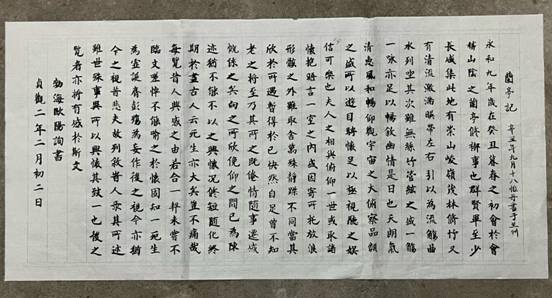 蘭亭記 辛丑年九月十八
永和九年歲在癸丑暮春之初會於會
稽山陰之蘭亭脩禊事也群賢畢至少
長咸集此地有崇山峻嶺茂林脩竹又
有清流激湍暎帶左右引以為流觴曲
水列坐其次雖無絲竹管絃之盛一觴
一詠亦足以暢敘幽情是日也天朗氣
清惠風和暢仰觀宇宙之大俯察品類
之盛所以遊目騁懷足以極視聽之娛
信可樂也夫人之相與俯仰一世或取諸
懷抱晤言一室之內或因寄所託放浪
形骸之外雖取舍萬殊靜躁不同當其
欣於所遇暫得於己怏然自足曾不知
老之將至及其所之既倦情隨事遷感
慨係之矣向之所欣俛仰之間已為陳
迹猶不能不以之興懷況脩短隨化終
期於盡古人云死生亦大矣豈不痛哉
每覽昔人興感之由若合一契未嘗不
臨文嗟悼不能喻之於懷固知一死生
為虛誕齊彭殤為妄作後之視今亦猶
今之視昔悲夫故列敘時人錄其所述
雖世殊事異所以興懷其致一也後之
覽者亦將有感於斯文
渤海歐陽詢書
貞觀二年二月初二日